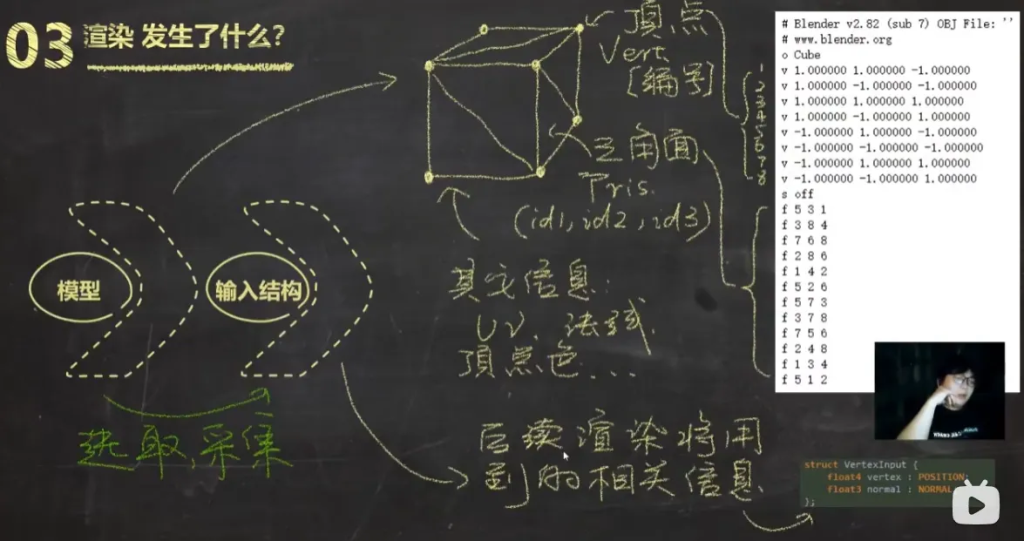 03 渲染 发生了什么?
頂点
Vert
[编号]
三角面
Pris.
(id1, id2, id3)
其它信息:
UV、法线
頂点色....
模型
输入结构
选取,采集
后续渲染将用
到的相关信息
1
2
3
4
5
6
7
8
# Blender v2.82 (sub 7) OBJ File: ''
# www.blender.org
o Cube
v 1.000000 1.000000 -1.000000
v 1.000000 -1.000000 -1.000000
v 1.000000 1.000000 1.000000
v 1.000000 -1.000000 1.000000
v -1.000000 1.000000 -1.000000
v -1.000000 -1.000000 -1.000000
v -1.000000 1.000000 1.000000
v -1.000000 -1.000000 1.000000
s off
f 5 3 1
f 3 8 4
f 7 6 8
f 2 8 6
f 1 4 2
f 5 2 6
f 5 7 3
f 3 7 8
f 7 5 6
f 2 4 8
f 1 3 4
f 5 1 2
struct VertexInput {
float4 vertex : POSITION
float3 normal : NORMAL
};